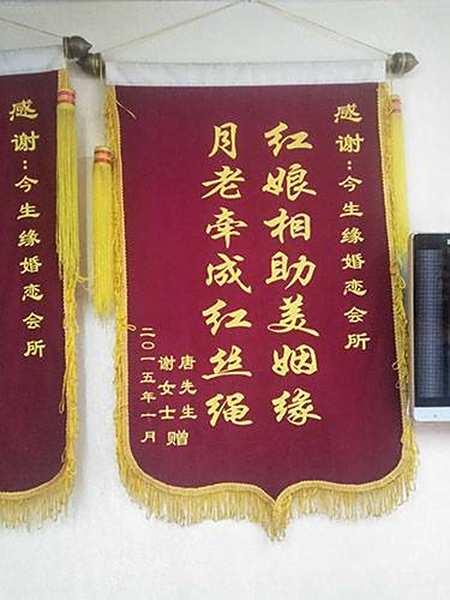 感谢：今生缘婚恋会所
红娘相助美姻缘
月老牵成红丝绳
唐先生
谢女士 赠
二〇一五年一月
感谢：今生缘婚恋会所